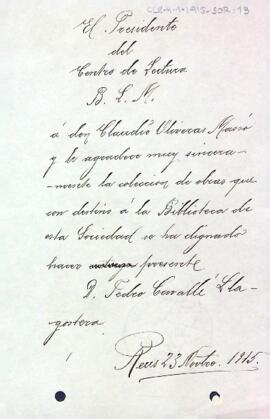 El Presidente
del
Centro de Lectura
B. L. M.
á don Claudio Oliveras Massó
y le agradece muy sincera-
-mente la coleccion de obras que
con destino á la Biblioteca de
esta Sociedad se ha dignado
hacer presente
D. Pedro Cavallé Lla-
gostera
Reus 23 Novbre. 1915.